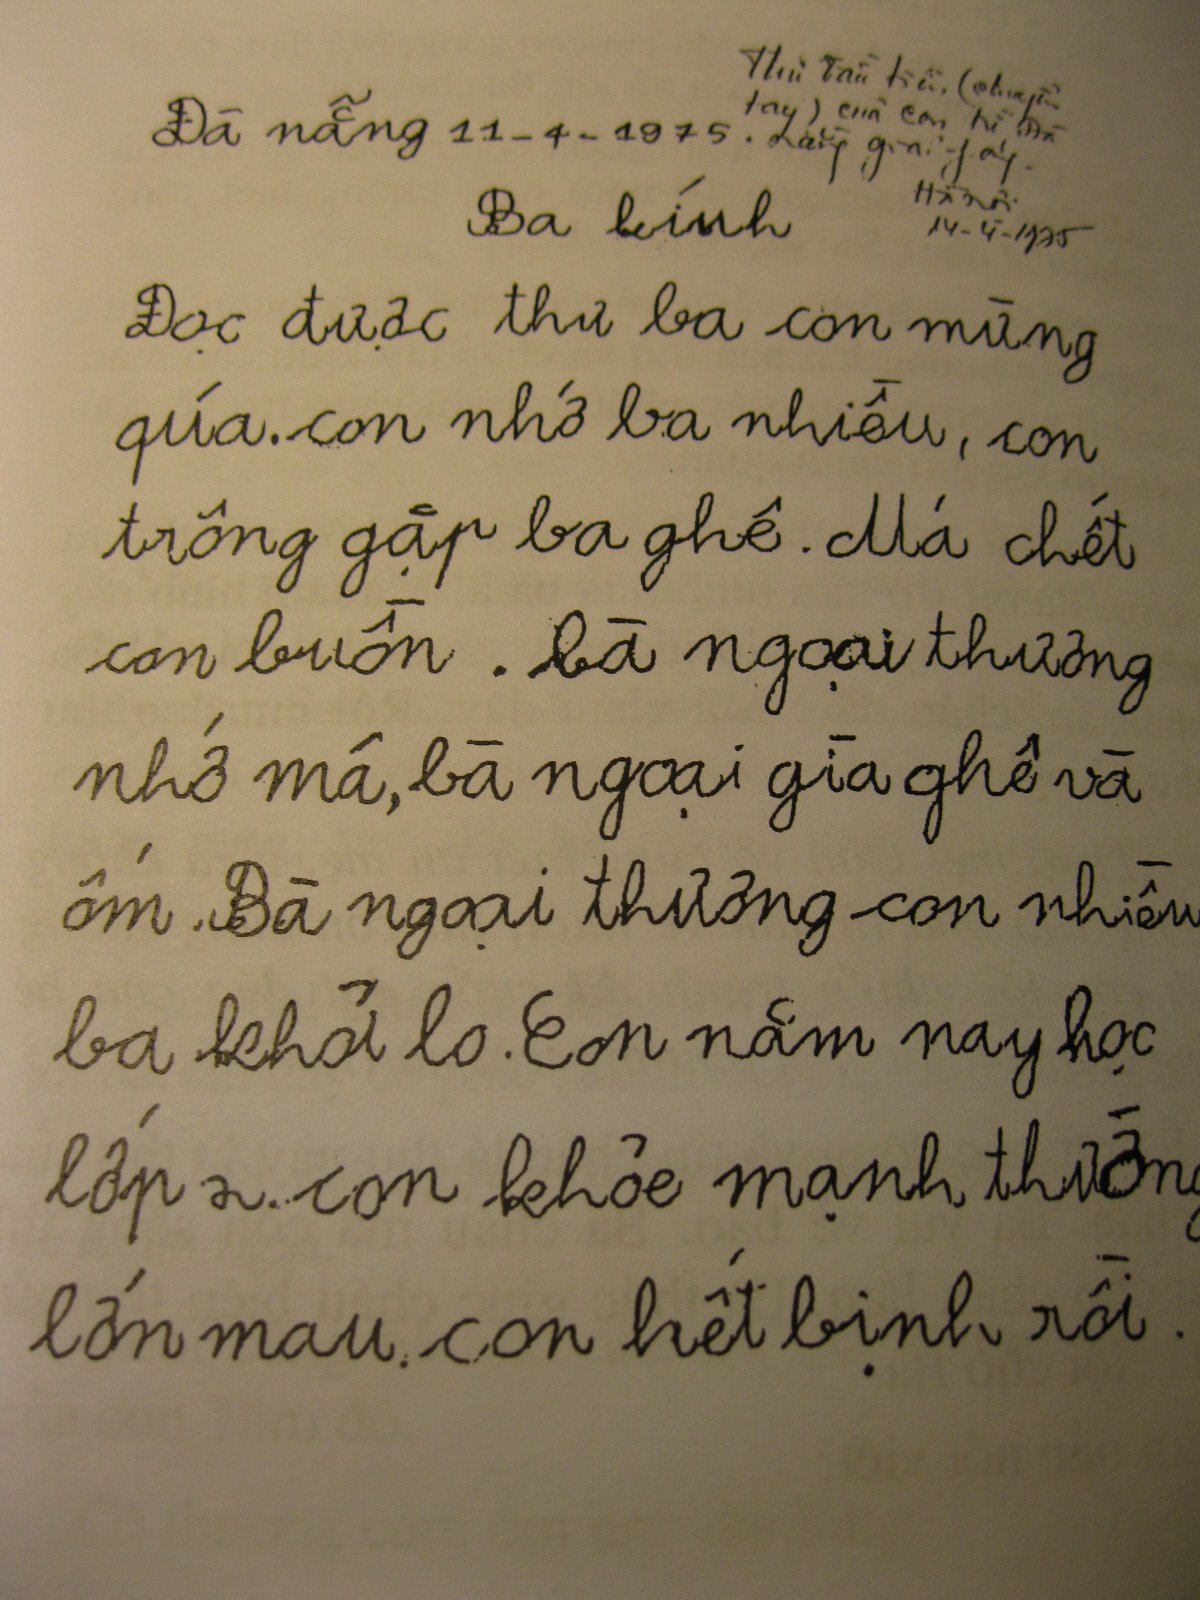 Thư đầu tiên (chuyền
tay) của con
Đà nẵng 11-4-1975.
giai
Hà nội
14-4-1975
Ba kính
Đọc được thư ba con mừng
qúa. con nhớ ba nhiều, con
trông gặp ba ghê. Má chết
con buồn. bà ngoại thương
nhớ má, bà ngoại gìa ghê và
ốm. Bà ngoại thương con nhiều
ba khỏi lo. Con năm nay học
lớp 2. con khỏe mạnh thường
lớn mau. con hết bịnh rồi.